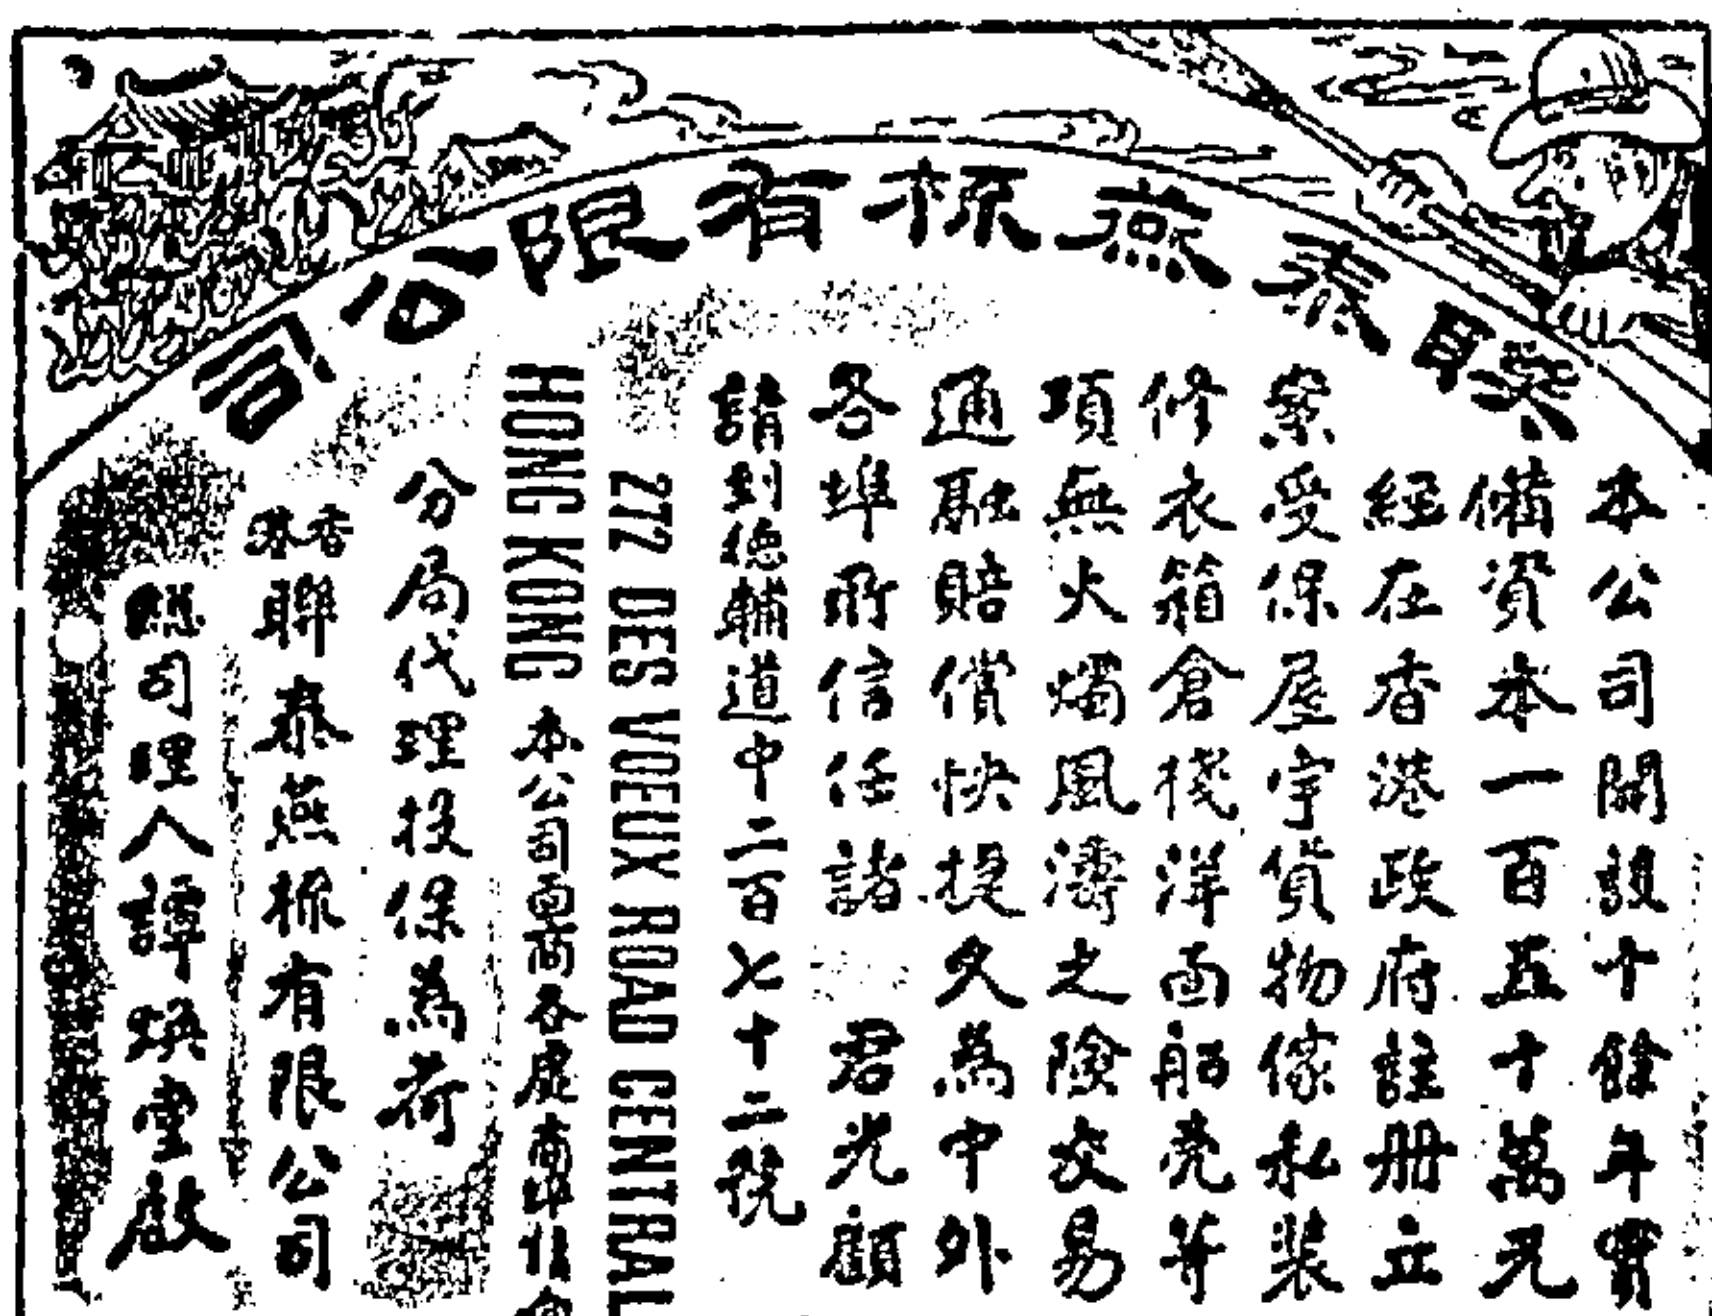 聯泰燕梳有限公司
本公司開設十餘年實
備資本一百五十萬元
經在香港政府註册立
案受保屋宇貨物傢私裝
修衣箱倉棧洋面船壳等
項無火燭風濤之險交易
通融賠償快捷久為中外
各埠所信任諸　君光顧
請到德輔道中二百七十二號
272 DES VOEUX ROAD CENTRAL
HONG KONG 本公司各處
分局代理投保為荷
香港聯泰燕梳有限公司
司理人譚煥堂啟